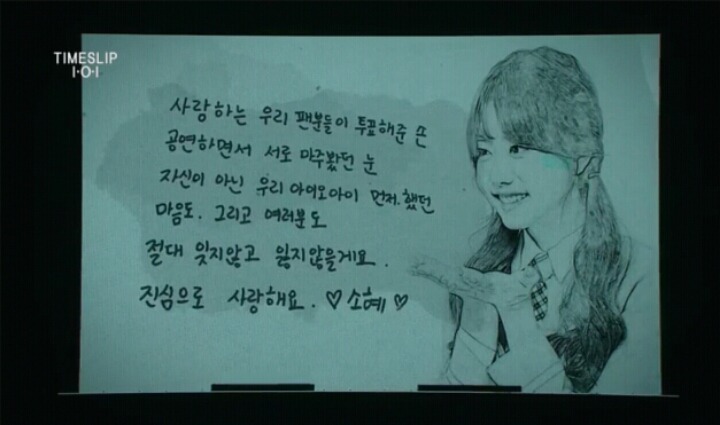 TIMESLIP
I·O·I
사랑하는 우리 팬분들이 투표해준 손
공연하면서 서로 마주봤던 눈
자신이 아닌 우리 아이오아이 먼저.했던
마음도. 그리고 여러분도
절대 잊지않고 잃지않을게요.
진심으로 사랑해요. ♡ 소혜 ♡